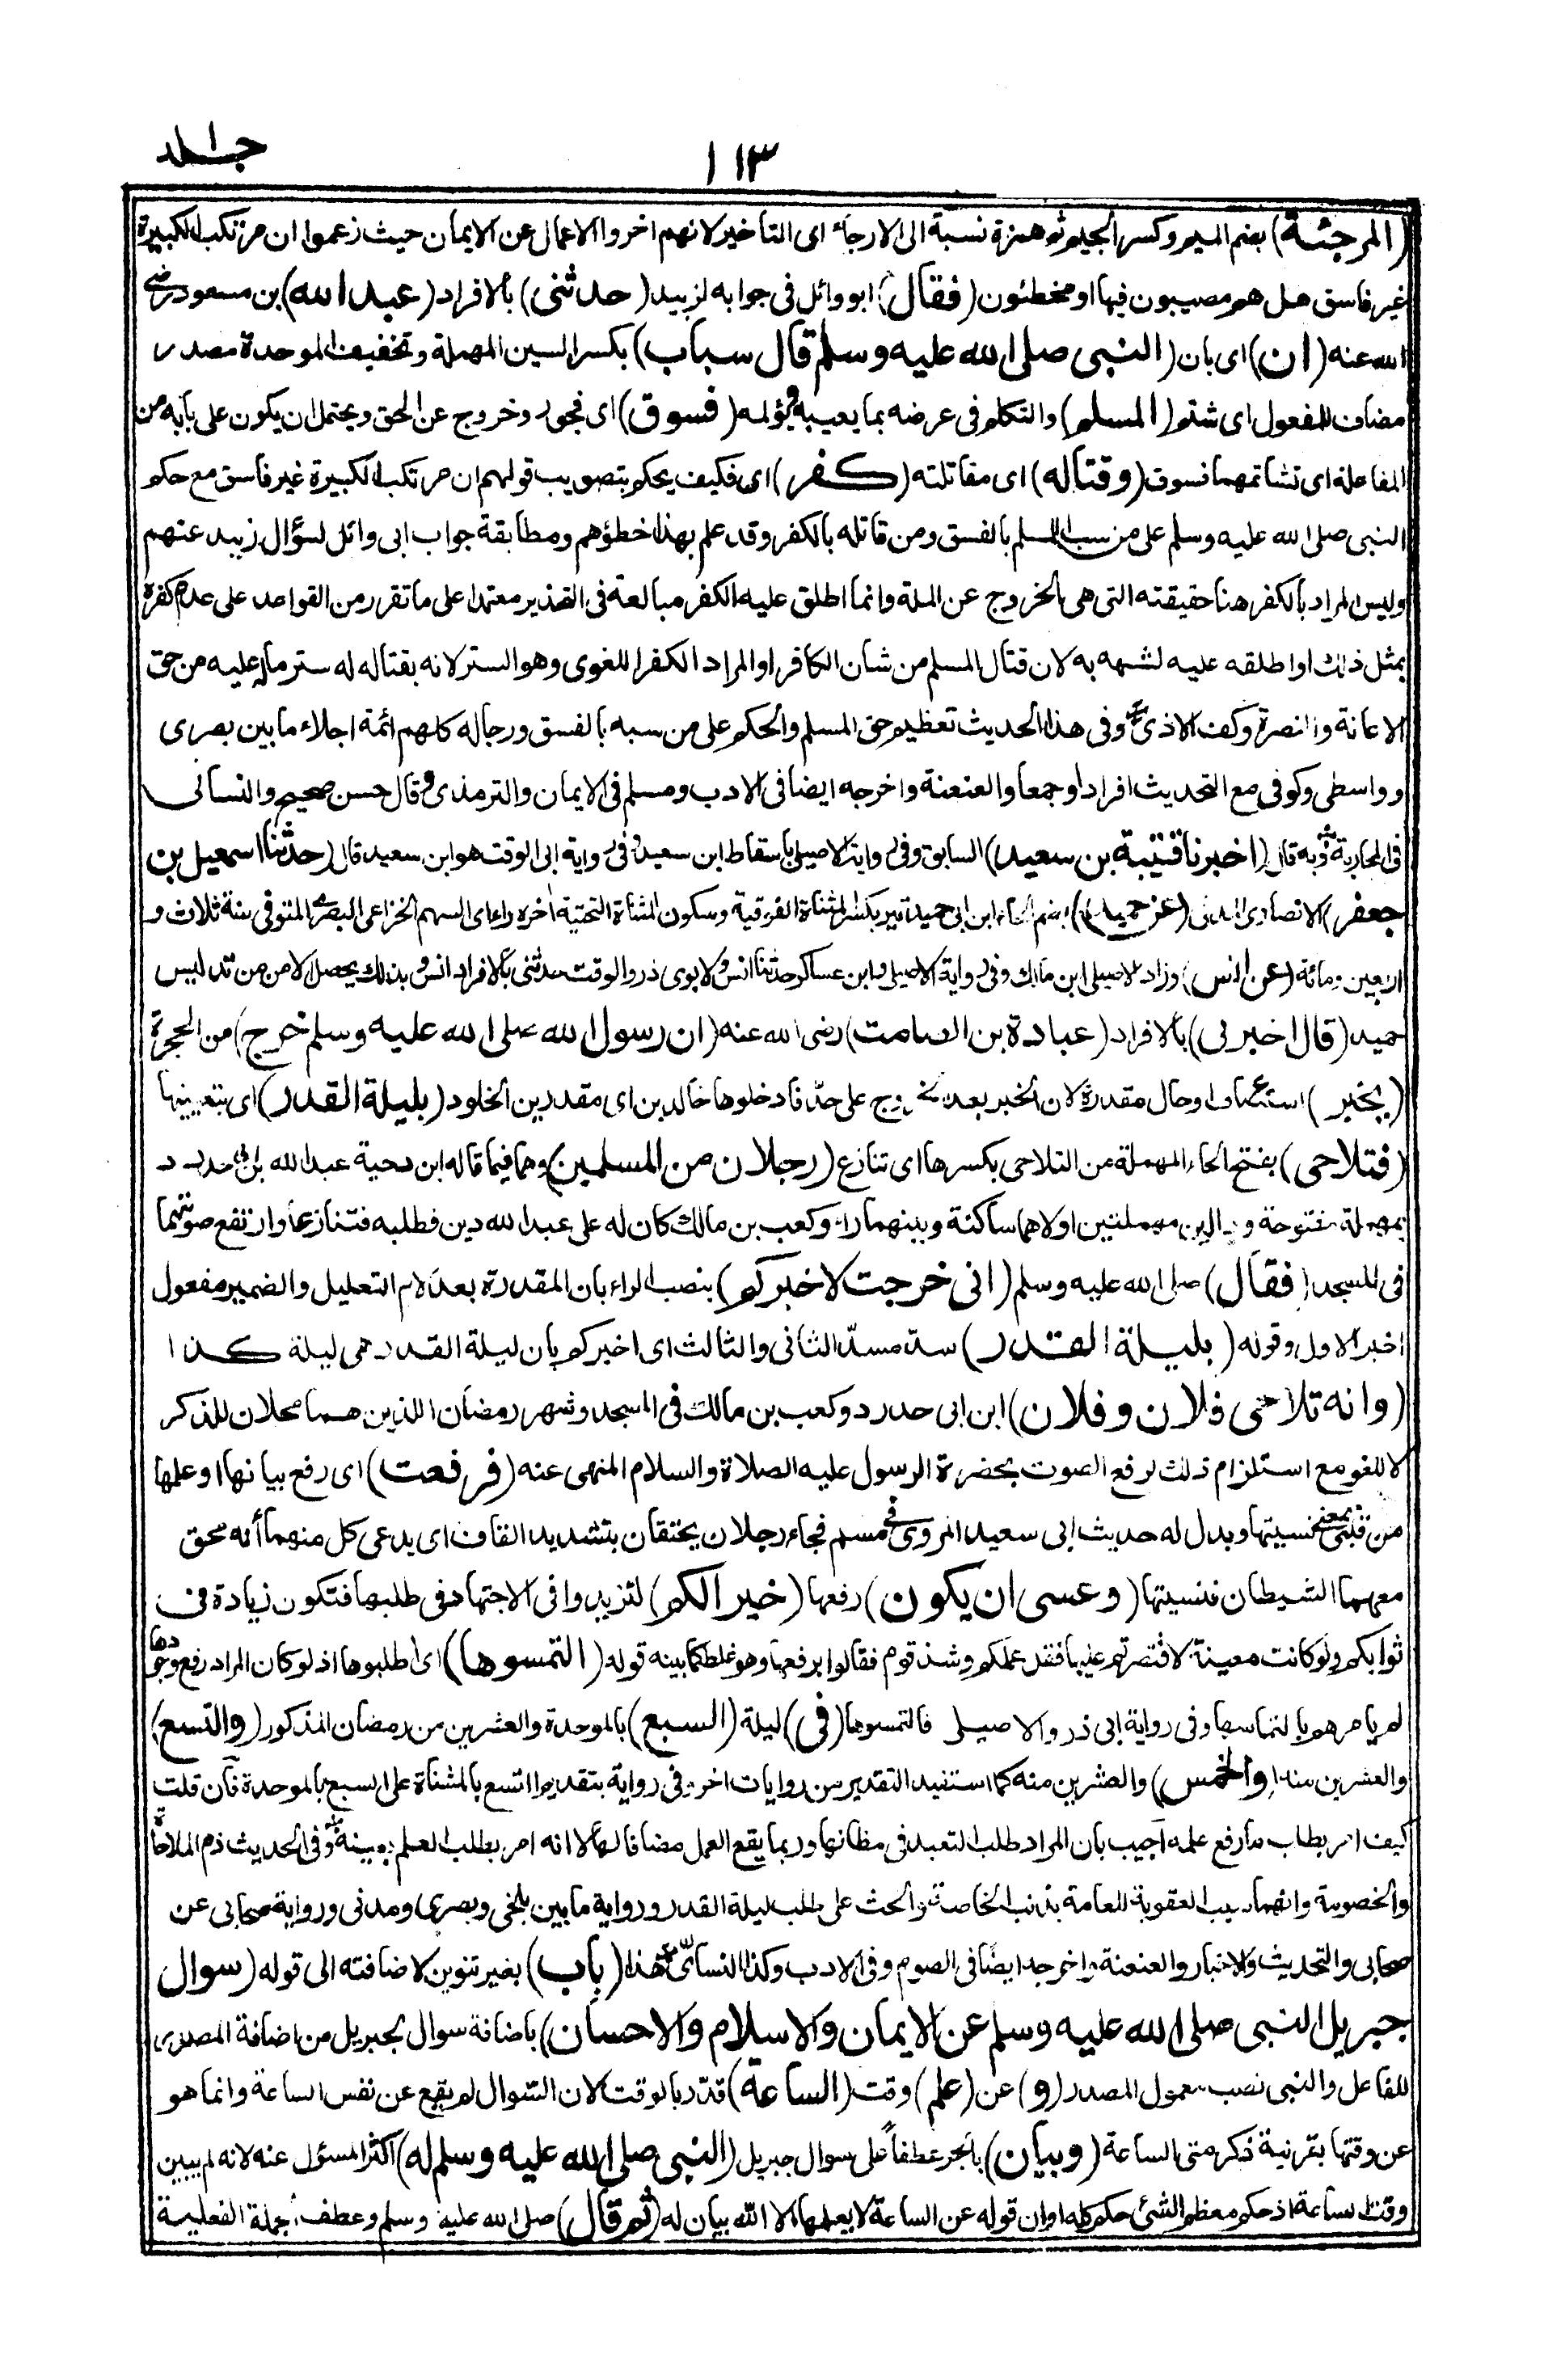 ١١٣
جلد ١
(المرجئة) بضم الميم وكسر الجيم ثم همزة نسبة الى الارجاء اى التاخير لانهم اخروا الاعمال عن الايمان حيث زعموا ان مرتكب الكبيرة
غير فاسق هل هم مصيبون فيها او مخطئون (فقال) ابو وائل فى جوابه لزبيد (حدثنى) بالافراد (عبد الله) بن مسعود رضى
الله عنه (ان) اى بان (النبى صلى الله عليه وسلم قال سباب) بكسر السين المهملة وتخفيف الموحدة مصدر
مضاف للمفعول اى شتم (المسلم) والتكلم فى عرضه بما يعيبه ويؤلمه (فسوق) اى فجور وخروج عن الحق ويحتمل ان يكون على بابه من
المفاعلة اى تشاتمهما فسوق (وقتاله) اى مقاتلته (كفر) اى فكيف يحكم بتصويب قولهم ان مرتكب الكبيرة غير فاسق مع حكم
النبى صلى الله عليه وسلم على من سب المسلم بالفسق ومن قاتله بالكفر وقد علم بهذا خطؤهم ومطابقة جواب ابى وائل لسؤال زبيد عنهم
وليس المراد بالكفر هنا حقيقته التى هى الخروج عن الملة وانما اطلق عليه الكفر مبالغة فى التحذير معتمدا على ما تقرر من القواعد على عدم كفره
بمثل ذلك او اطلقه عليه لشبهه به لان قتال المسلم من شان الكافر او المراد الكفر اللغوى وهو الستر لانه بقتاله له ستر ماله عليه من حق
الاعانة والنصرة وكف الاذى وفى هذا الحديث تعظيم حق المسلم والحكم على من سبه بالفسق ورجاله كلهم ائمة اجلاء ما بين بصرى
وواسطى وكوفى مع التحديث افرادا وجمعا والعنعنة واخرجه ايضا فى الادب ومسلم فى الايمان والترمذى وقال حسن صحيح والنسائى
فى المحاربة وبه قال (اخبرنا قتيبة بن سعيد) السابق وفى رواية الاصيلى باسقاط ابن سعيد وفى رواية ابى الوقت هو ابن سعيد قال (حدثنا اسمعيل بن
جعفر) الانصارى المدنى (عن حميد) بضم الحاء ابن ابى حميد تير بكسر المثناة الفوقية وسكون المثناة التحتية اخره راء اى السهم الخزاعى البصرى المتوفى سنة ثلاث و
اربعين ومائة (عن انس) وزاد الاصيلى ابن مالك وفى رواية الاصيلى وابن عساكر حدثنا انس ولابوى ذر والوقت حدثنى بالافراد انس وبذلك يحصل الامن من تدليس
حميد (قال اخبرنى) بالافراد (عبادة بن الصامت) رضى الله عنه (ان رسول الله صلى الله عليه وسلم خرج) من الحجرة
(يخبر) استئناف او حال مقدرة لان الخبر بعد الخروج على حدّ فادخلوها خالدين اى مقدرين الخلود (بليلة القدر) اى بتعيينها
(فتلاحى) بفتح الحاء المهملة من التلاحى بكسرها اى تنازع (رجلان من المسلمين) وهما فيما قاله ابن دحية عبد الله بن ابى حدرد
بمهملة مفتوحة ودالين مهملتين اولاهما ساكنة وبينهما راء وكعب بن مالك كان له على عبد الله دين فطلبه فتنازعا وارتفع صوتهما
فى المسجد (فقال) صلى الله عليه وسلم (انى خرجت لاخبركم) بنصب الراء بان المقدرة بعد لام التعليل والضمير مفعول
اخبر الاول وقوله (بليلة القدر) سدّ مسدّ الثانى والثالث اى اخبركم بان ليلة القدر هى ليلة كذا
(وانه تلاحى فلان وفلان) ابن ابى حدرد وكعب بن مالك فى المسجد وشهر رمضان اللذين هما محلان للذكر
لا للغو مع استلزام ذلك لرفع الصوت بحضرة الرسول عليه الصلاة والسلام المنهى عنه (فرفعت) اى رفع بيانها او علمها
من قلبى بمعنى نسيتها ويدل له حديث ابى سعيد المروى فى مسلم فجاء رجلان يحتقان بتشديد القاف اى يدعى كل منهما أنه محق
معهما الشيطان فنسيتها (وعسى ان يكون) رفعها (خيرا لكم) لتزيدوا فى الاجتهاد فى طلبها فتكون زيادة فى
ثوابكم ولو كانت معينة لاقتصرتم عليها فقل عملكم وشذ قوم فقالوا برفعها وهو غلط كما بينه قوله (التمسوها) اى اطلبوها اذ لو كان المراد رفع وجودها
لم يامرهم بالتماسها وفى رواية ابى ذر والاصيلى فالتمسوها (فى) ليلة (السبع) بالموحدة والعشرين من رمضان المذكور (والتسع)
والعشرين منه (والخمس) والعشرين منه كما استفيد التقدير من روايات اخر وفى رواية بتقديم التسع بالمثناة على السبع بالموحدة فان قلت
كيف امر بطلب ما رفع علمه اجيب بان المراد طلب التعبد فى مظانها وربما يقع العمل مضافا لها لا انه امر بطلب العلم بعينه وفى الحديث ذم الملاحاة
والخصومة وانهما سبب العقوبة للعامة بذنب الخاصة والحث على طلب ليلة القدر ورواية ما بين بلخى وبصرى ومدنى ورواية صحابى عن
صحابى والتحديث والاخبار والعنعنة واخرجه ايضا فى الصوم وفى الادب وكذا النسائى هذا (باب) بغير تنوين لاضافته الى قوله (سوال
جبريل النبى صلى الله عليه وسلم عن الايمان والاسلام والاحسان) باضافة سوال لجبريل من اضافة المصدر
للفاعل والنبى نصب معمول المصدر (و) عن (علم) وقت (الساعة) قدّر بالوقت لان السّوال لم يقع عن نفس الساعة وانما هو
عن وقتها بقرينة ذكر متى الساعة (وبيان) بالجر عطفاً على سوال جبريل (النبى صلى الله عليه وسلم له) اكثر المسئول عنه لانه لم يبين
وقت الساعة اذ حكم معظم الشئ حكم كله او ان قوله عن الساعة لا يعلمها الا الله بيان له (ثم قال) صلى الله عليه وسلم وعطف الجملة الفعلية